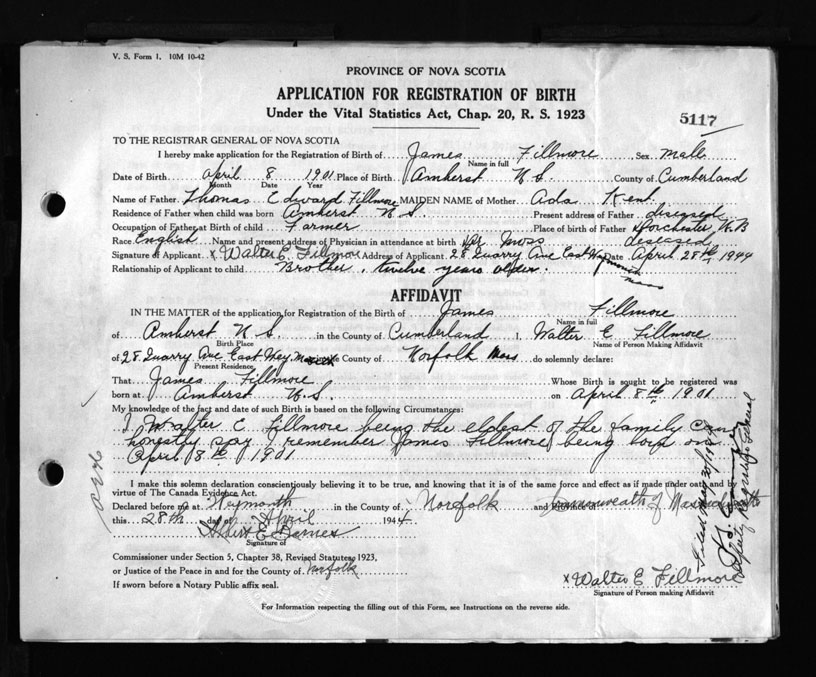 V. S. Form 1. 10M 10-42
PROVINCE OF NOVA SCOTIA
APPLICATION FOR REGISTRATION OF BIRTH
Under the Vital Statistics Act, Chap. 20, R. S. 1923
5117
TO THE REGISTRAR GENERAL OF NOVA SCOTIA
I hereby make application for the Registration of Birth of James Fillmore Sex Male
Name in full
Date of Birth April 8 1901 Place of Birth Amherst N.S. County of Cumberland
Month Date Year
Name of Father Thomas Edward Fillmore MAIDEN NAME of Mother Ada Kent
Residence of Father when child was born Amherst N.S. Present address of Father diseased
Occupation of Father at Birth of child Farmer Place of birth of Father Dorchester N.B
Race English Name and present address of Physician in attendance at birth Dr Moss deseased
Signature of Applicant x Walter E. Fillmore Address of Applicant 28 Quarry Ave East Weymouth Mass Date April 28th 1944
Relationship of Applicant to child Brother, twelve years older.
AFFIDAVIT
IN THE MATTER of the application for Registration of the Birth of James Fillmore
Name in full
of Amherst N.S. in the County of Cumberland I, Walter E Fillmore
Birth Place Name of Person Making Affidavit
of 28 Quarry Ave East Wey in the County of Norfolk Mass do solemnly declare:
Present Residence
That James Fillmore Whose Birth is sought to be registered was
born at Amherst N.S. on April 8th 1901
My knowledge of the fact and date of such Birth is based on the following Circumstances:
I Walter E Fillmore being the eldest of the family can
honestly say I remember James Fillmore being born on
April 8th 1901
I make this solemn declaration conscientiously believing it to be true, and knowing that it is of the same force and effect as if made under oath and by
virtue of The Canada Evidence Act.
Declared before me at Weymouth in the County of Norfolk and Commonwealth of Massachusetts
this 28th day of April 1944
Albert E. Barnes
Signature of
Commissioner under Section 5, Chapter 38, Revised Statutes 1923,
or Justice of the Peace in and for the County of Norfolk
If sworn before a Notary Public affix seal.
x Walter E Fillmore
Signature of Person making Affidavit
For Information respecting the filling out of this Form, see Instructions on the reverse side.
Deputy Registrar General